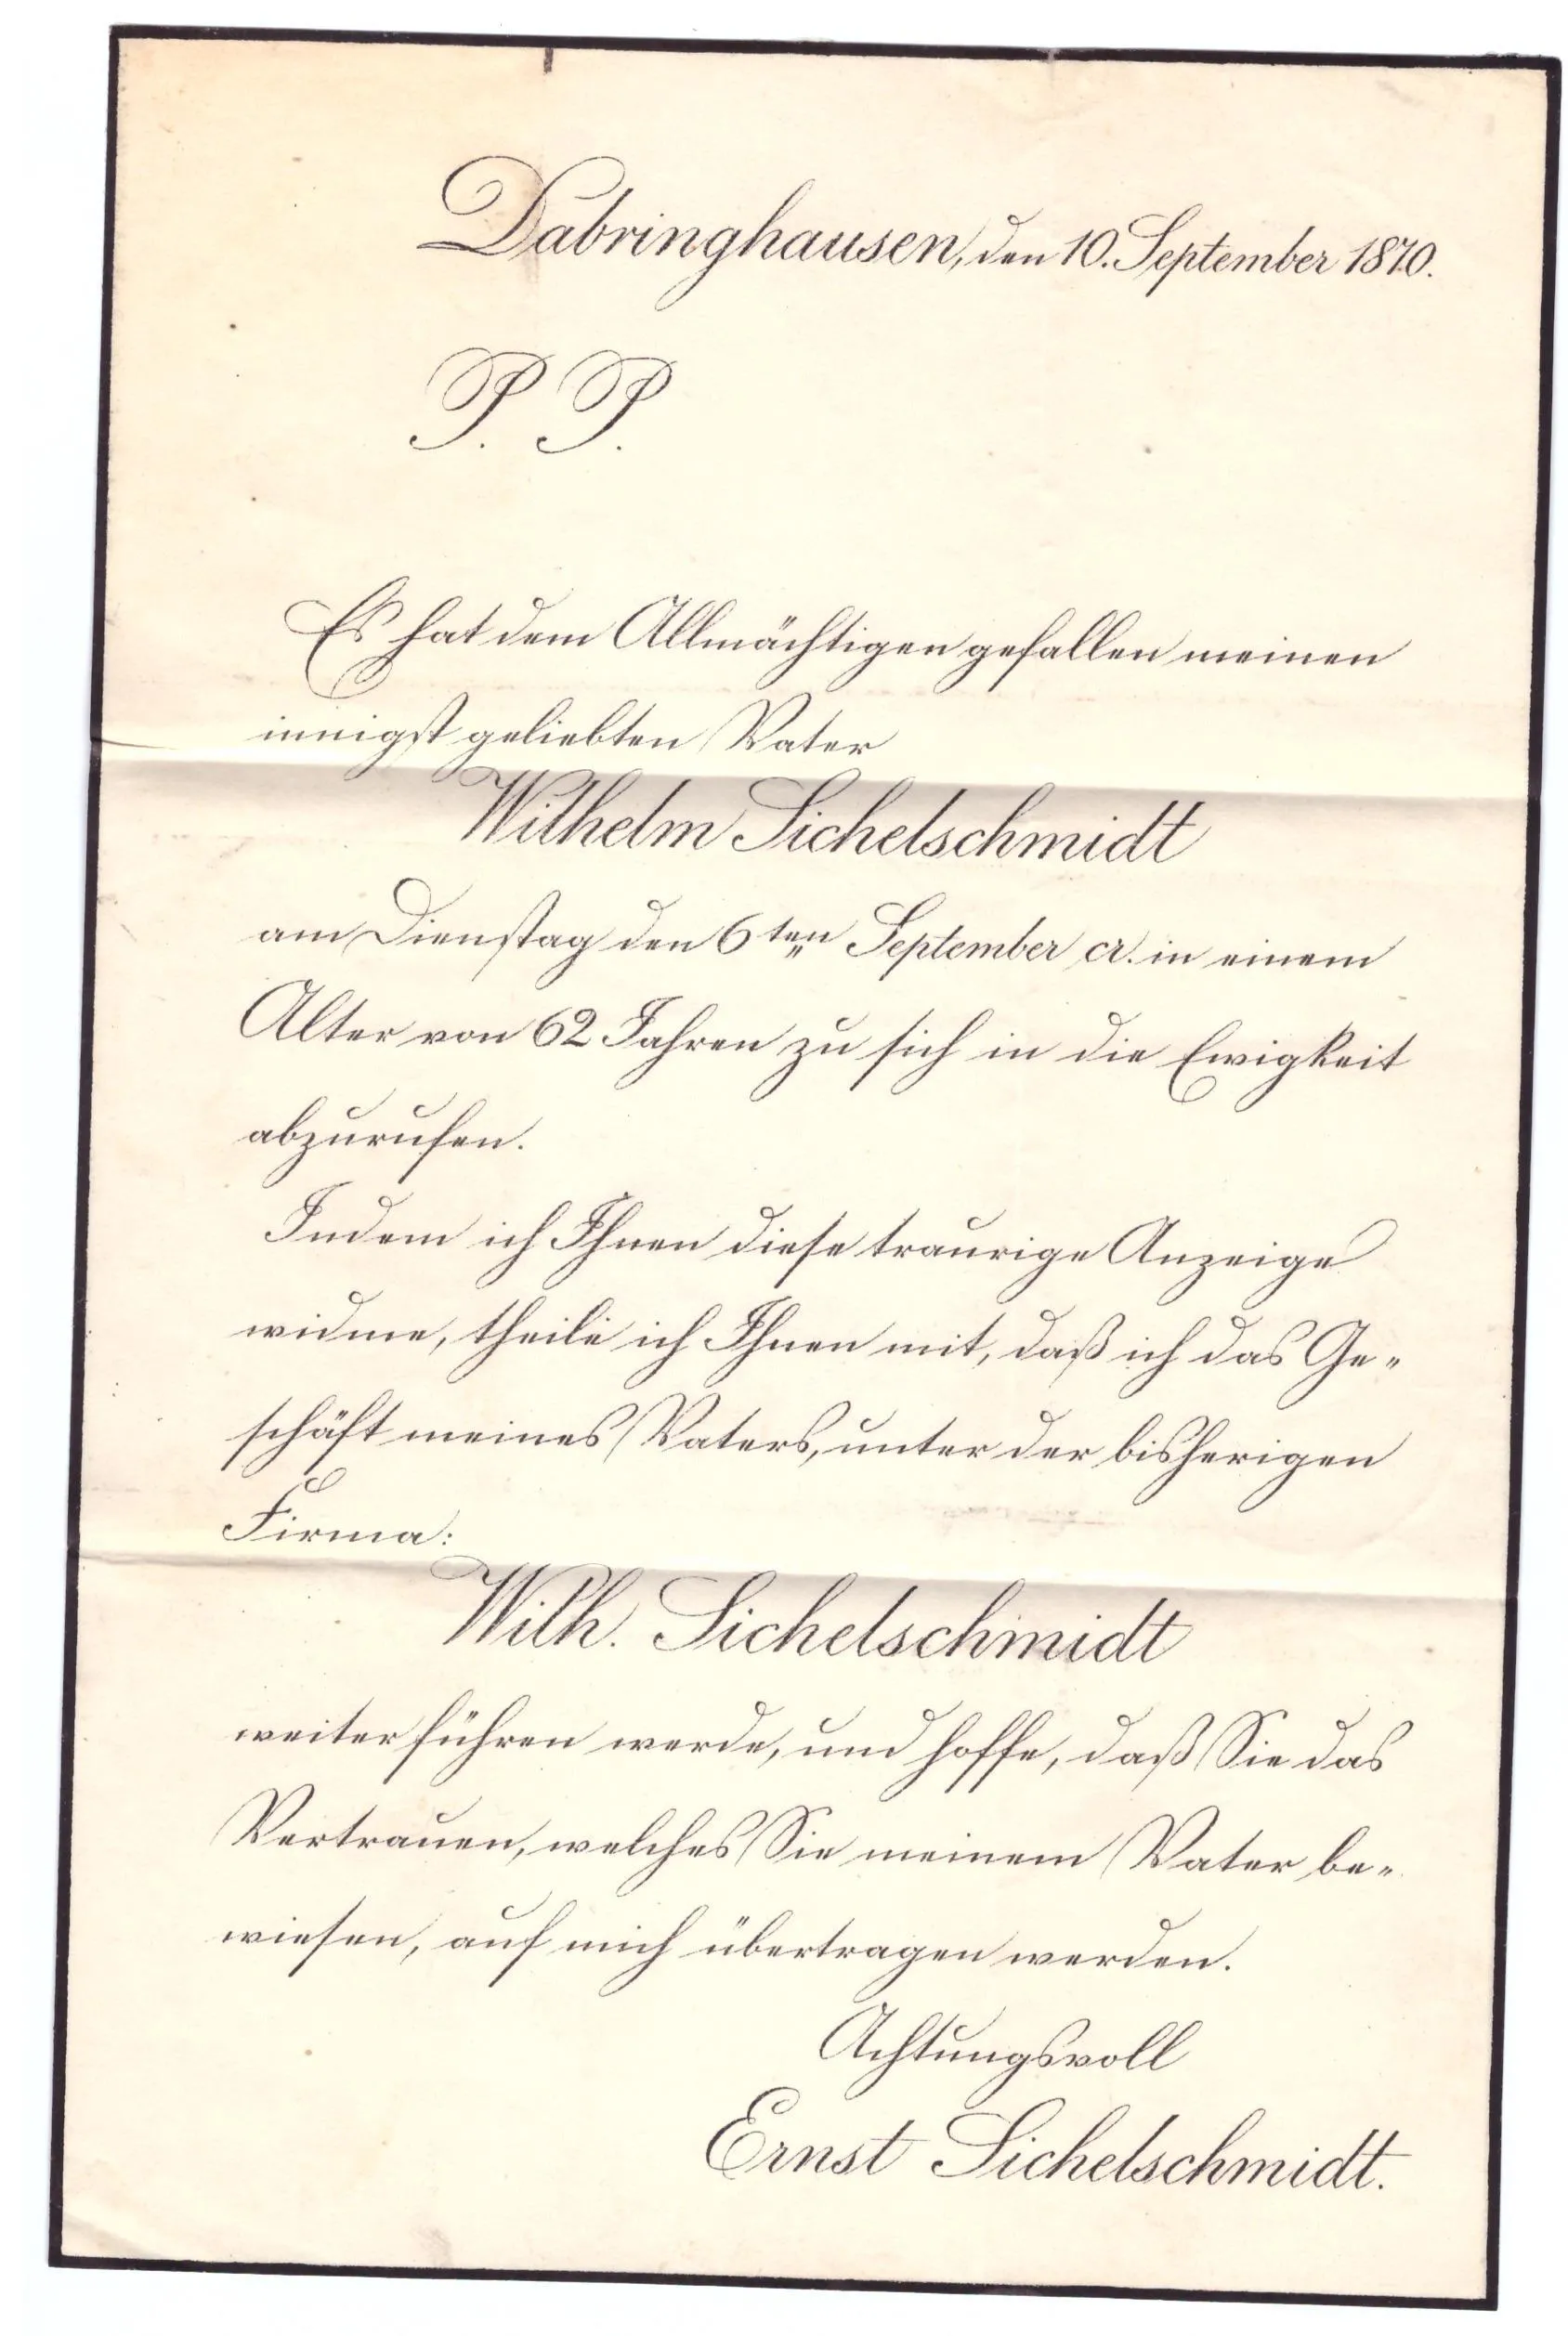 Dabringhausen, den 10. September 1870.
P. P.
Es hat dem Allmächtigen gefallen meinen
innigst geliebten Vater
Wilhelm Sichelschmidt
am Dienstag den 6ten September cr. in einem
Alter von 62 Jahren zu sich in die Ewigkeit
abzurufen.
Indem ich Ihnen diese traurige Anzeige
widme, theile ich Ihnen mit, daß ich das Ge-
schäft meines Vaters, unter der bisherigen
Firma:
Wilh. Sichelschmidt
weiter führen werde, und hoffe, daß Sie das
Vertrauen, welches Sie meinem Vater be-
wiesen, auf mich übertragen werden.
Achtungsvoll
Ernst Sichelschmidt.